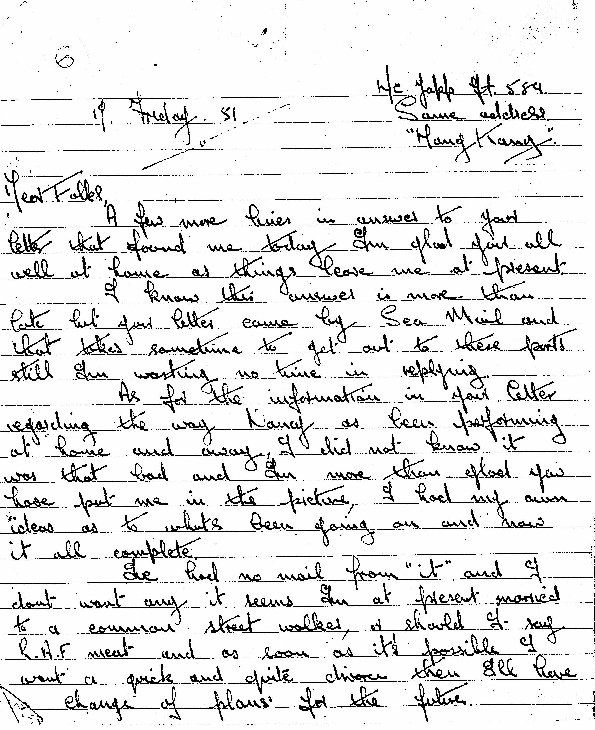 6
L/C Japp Yt. 584
19 Friday 51 Same address
"Hong Kong".
Dear Folks,
A few more lines in answer to your
letter that found me today Im glad your all
well at home as things leave me at present
I know this answer is more than
late but your letter came by Sea Mail and
that takes sometime to get out to these parts
still Im wasting no time in replying.
As for the information in your letter
regarding the way as been performing
at home and away, I did not know it
was that bad and Im more than glad you
have put me in the picture, I had my own
ideas as to whats been going on and now
it all complete.
Ive had no mail from "it" and I
dont want any it seems Im at present married
to a common street walker, or should I say
R.A.F meat and as soon as it's possible I
want a quick and quite divorce then Ill have
change of plans for the future.